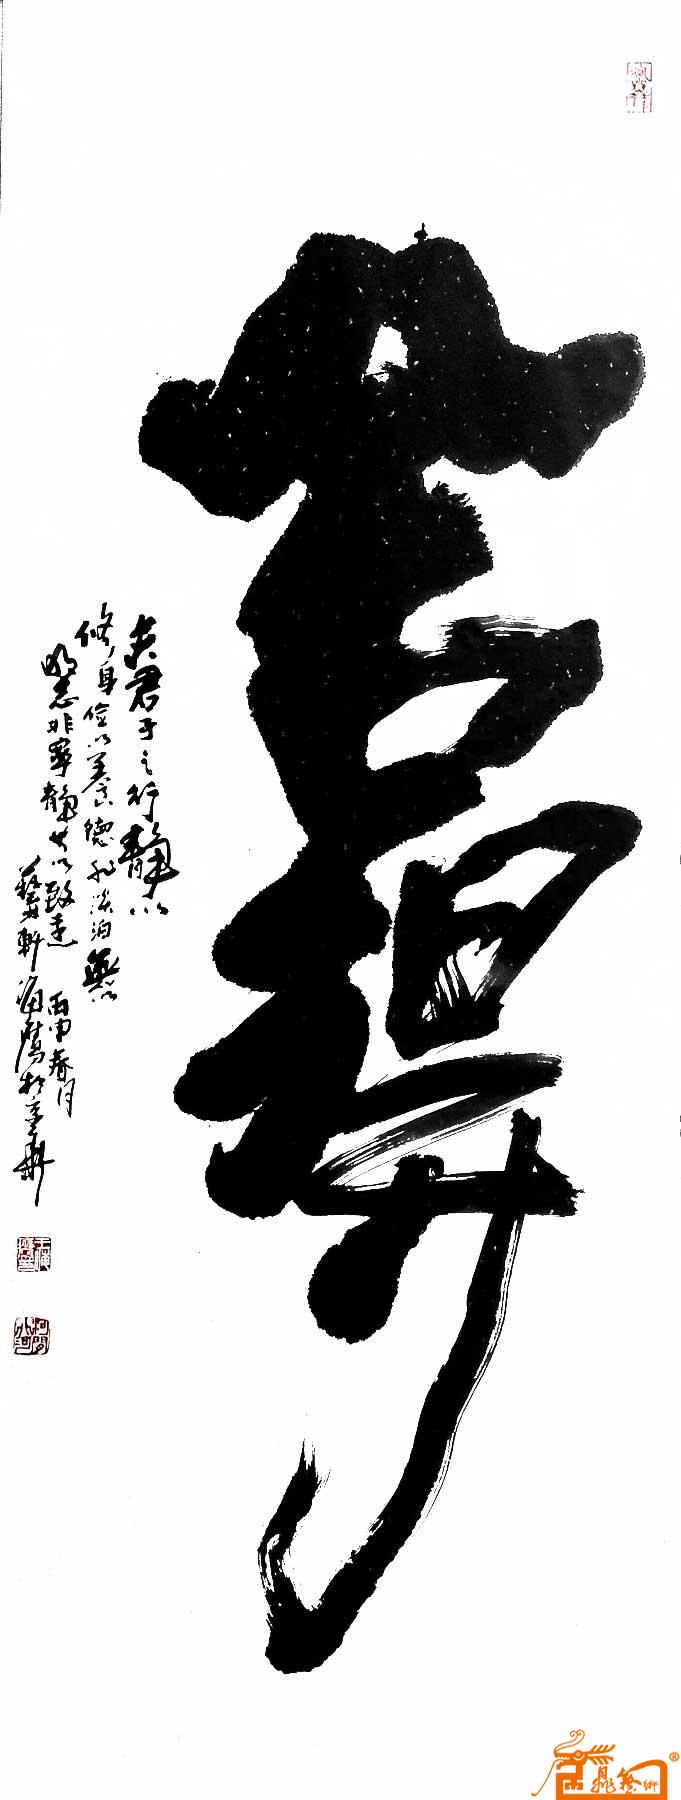 壽
夫君子之行靜以
修身俭以養德非淡泊無以
明志非寧靜無以致遠 丙申春月
藝軒 海鷹於京